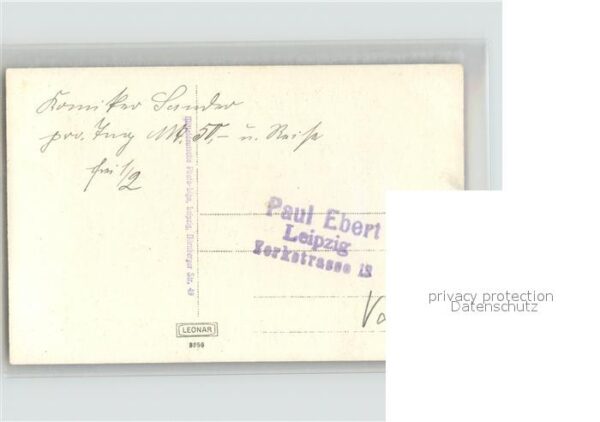 Komiker Sander
pro. Tag M. 50,- u. Reise
frei 1/2
Paul Ebert
Leipzig
Zerkstrasse 13
LEONAR
Vo
privacy protection
Datenschutz